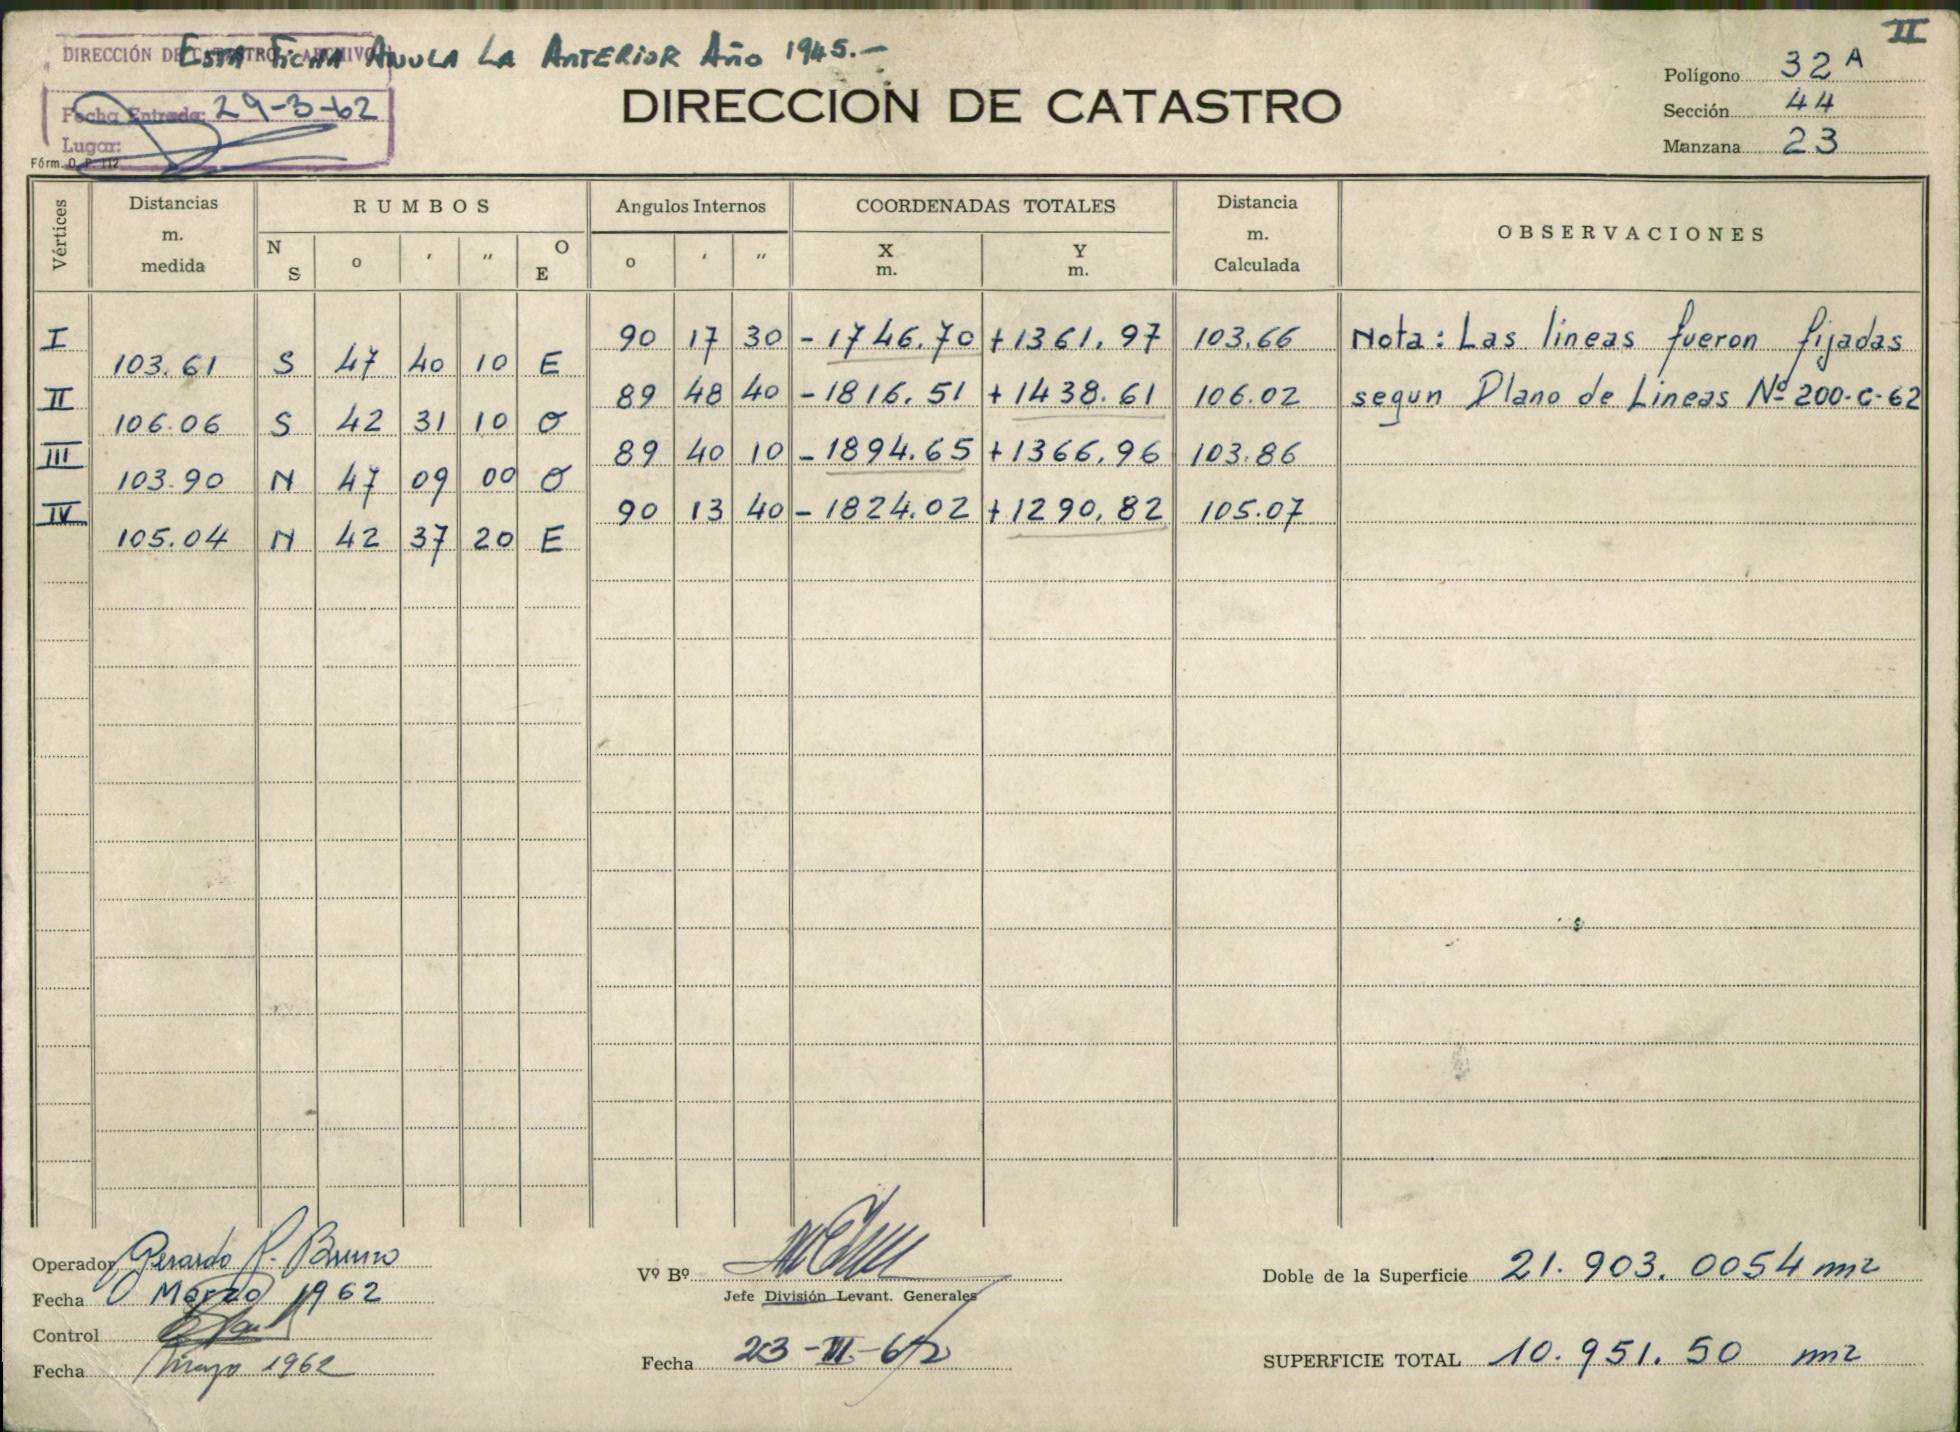 II
DIRECCIÓN DE CATASTRO - ARCHIVO
Esta Ficha Anula La Anterior Año 1945.-
Fecha Entrada: 29-3-62
Lugar:
Fórm. O. P. 112
DIRECCION DE CATASTRO
Polígono 32 A
Sección 44
Manzana 23
Vértices Distancias m. medida RUMBOS Angulos Internos COORDENADAS TOTALES Distancia m. Calculada OBSERVACIONES
N S o ' " O E o ' " X m. Y m.
I 90 17 30 -1746.70 +1361.97 103.66 Nota: Las lineas fueron fijadas
103.61 S 47 40 10 E
II 89 48 40 -1816.51 +1438.61 106.02 segun Plano de Lineas Nº 200-C-62
106.06 S 42 31 10 O
III 89 40 10 -1894.65 +1366.96 103.86
103.90 N 47 09 00 O
IV 90 13 40 -1824.02 +1290.82 105.07
105.04 N 42 37 20 E
Operador Gerardo Bruno
Fecha Marzo 1962
Control
Fecha Marzo 1962
Vº Bº
Jefe División Levant. Generales
Fecha 23-III-62
Doble de la Superficie 21.903.0054 m2
SUPERFICIE TOTAL 10.951.50 m2